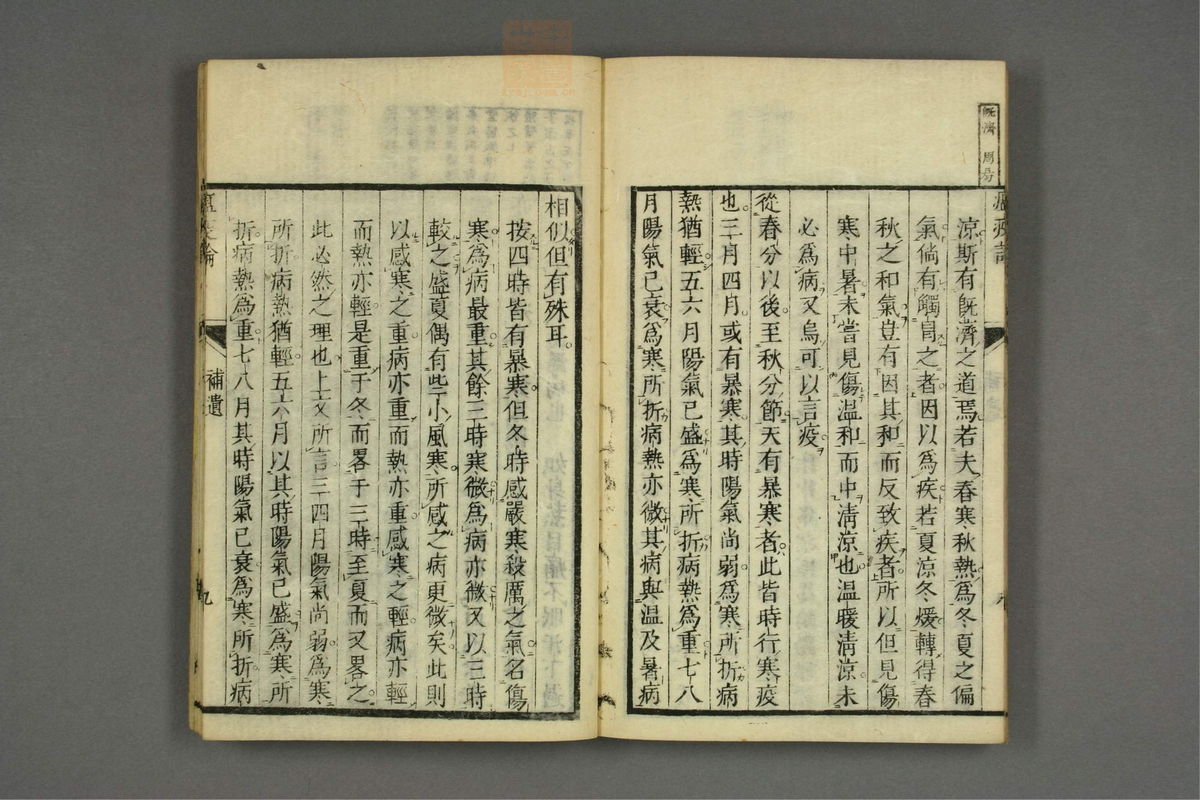 既濟 周易
涼斯有既濟之道焉若夫春寒秋熱爲冬夏之偏
氣倘有觸冐之者因以爲疾若夏涼冬煖轉得春
秋之和氣豈有因其和而反致疾者所以但見傷
寒中暑未嘗見傷温和而中淸涼也温暖淸涼未
必爲病又烏可以言疫
從春分以後至秋分節天有暴寒者此皆時行寒疫
也三月四月或有暴寒其時陽氣尚弱爲寒所折病
熱猶輕五六月陽氣已盛爲寒所折病熱爲重七八
月陽氣已衰爲寒所折病熱亦微其病與温及暑病
相似但有殊耳
按四時皆有暴寒但冬時感嚴寒殺厲之氣名傷
寒爲病最重其餘三時寒微爲病亦微又以三時
較之盛夏偶有些小風寒所感之病更微矣此則
以感寒之重病亦重而熱亦重感寒之輕病亦輕
而熱亦輕是重于冬而畧于三時至夏而又畧之
此必然之理也上文所言三四月陽氣尚弱爲寒
所折病熱猶輕五六月以其時陽氣已盛爲寒所
折病熱爲重七八月其時陽氣已衰爲寒所折病
補遺
九